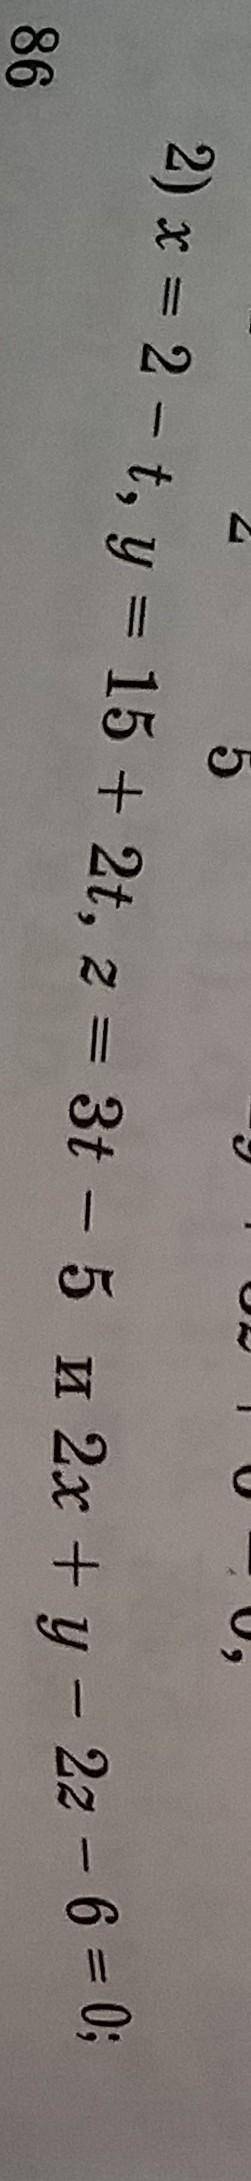 2) x = 2 − t, y = 15 + 2t, z = 3t − 5 и 2x + y − 2z − 6 = 0;
86